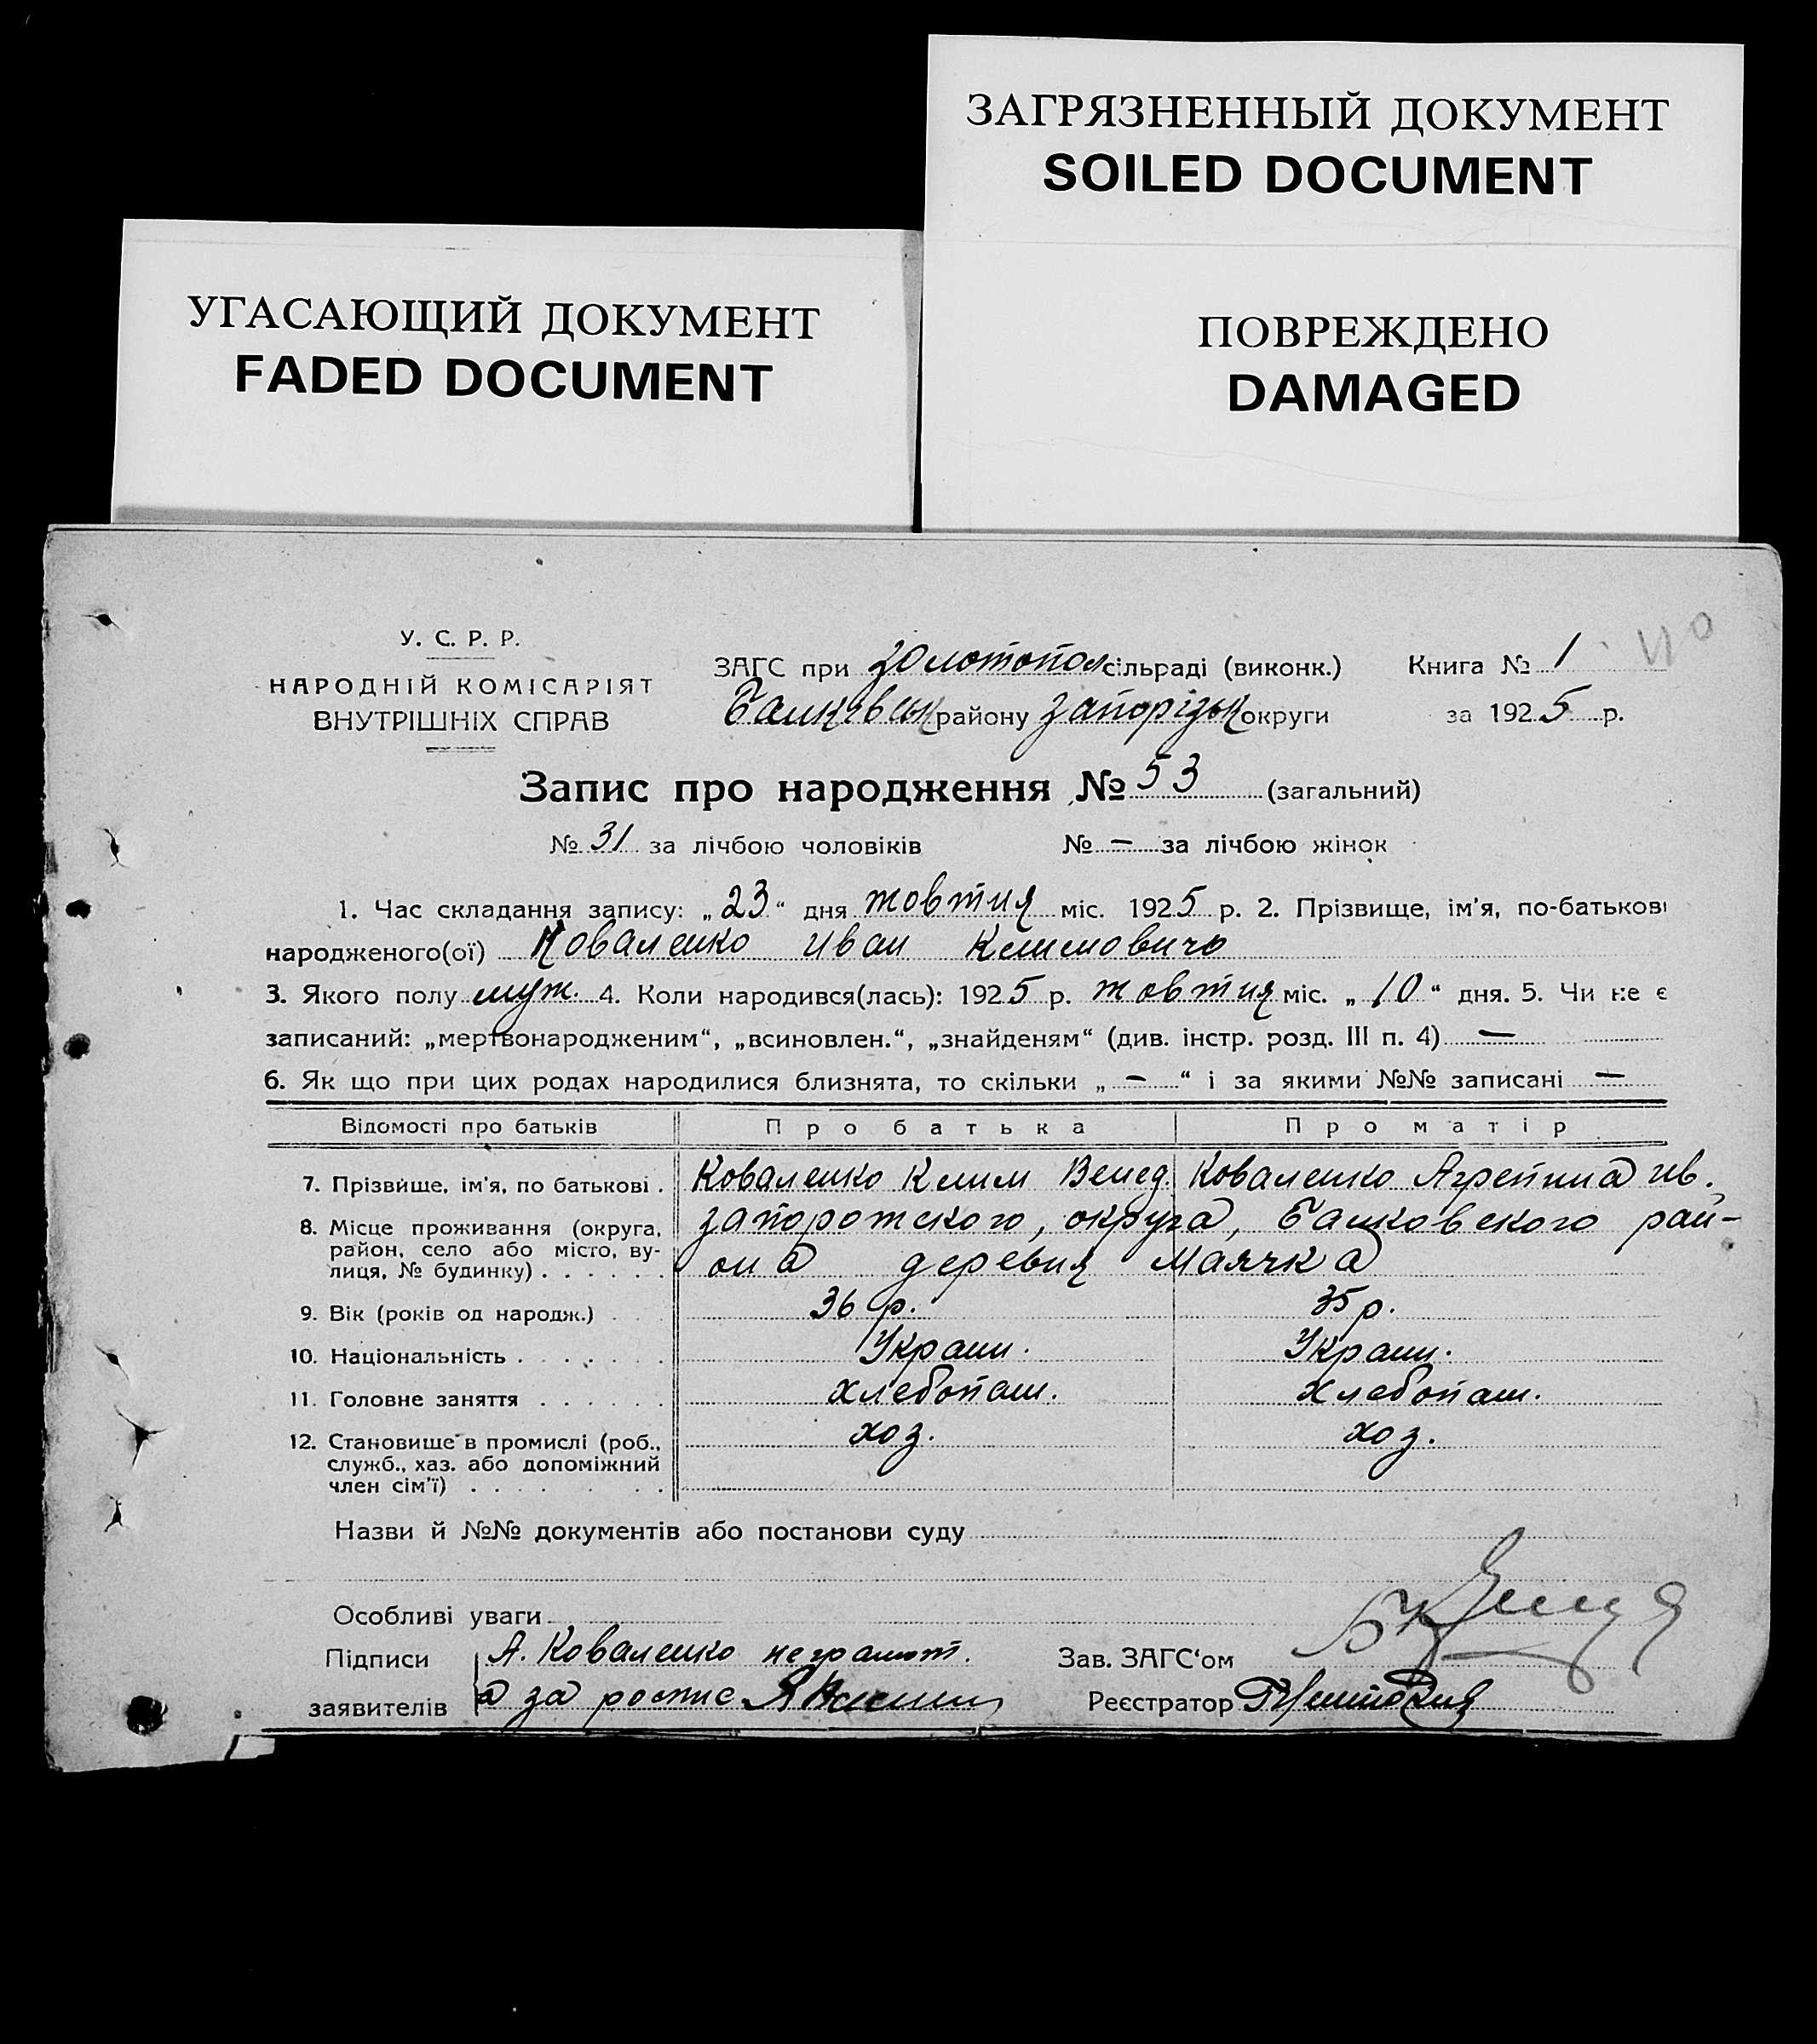 ЗАГРЯЗНЕННЫЙ ДОКУМЕНТ
SOILED DOCUMENT
УГАСАЮЩИЙ ДОКУМЕНТ
FADED DOCUMENT
ПОВРЕЖДЕНО
DAMAGED
У. С. Р. Р.
НАРОДНІЙ КОМІСАРІЯТ
ВНУТРІШНІХ СПРАВ
ЗАГС при Золотопол сільраді (виконк.) Книга № 1
району Запорізьк округи за 1925 р.
Запис про народження № 53 (загальний)
№ 31 за лічбою чоловіків № — за лічбою жінок
1. Час складання запису: „23“ дня жовтня міс. 1925 р. 2. Прізвище, ім'я, по-батькові
народженого(ої) Коваленко Иван Климовичъ
3. Якого полу муж. 4. Коли народився(лась): 1925 р. жовтня міс. „10“ дня. 5. Чи не є
записаний: „мертвонародженим“, „всиновлен.“, „знайденям“ (див. інстр. розд. III п. 4) —
6. Як що при цих родах народилися близнята, то скільки „ — “ і за якими №№ записані —
Відомості про батьків Про батька Про матір
7. Прізвище, ім'я, по батькові . Коваленко Клим Венед. Коваленко Агрепина Ив.
8. Місце проживання (округа, запорожского, округа, Балковского рай-
район, село або місто, ву-
лиця, № будинку) . . . . . . она деревня Маячка
9. Вік (років од народж.) . . . 36 р. 35 р.
10. Національність . . . . . . . Украин. Украин.
11. Головне заняття . . . . . . хлебопаш. хлебопаш.
12. Становище в промислі (роб., хоз. хоз.
служб., хаз. або допоміжний
член сім'ї) . . . . . . .
Назви й №№ документів або постанови суду
Особливі уваги
Підписи А. Коваленко неграмот. Зав. ЗАГС‘ом
заявителів а за роспис Реєстратор